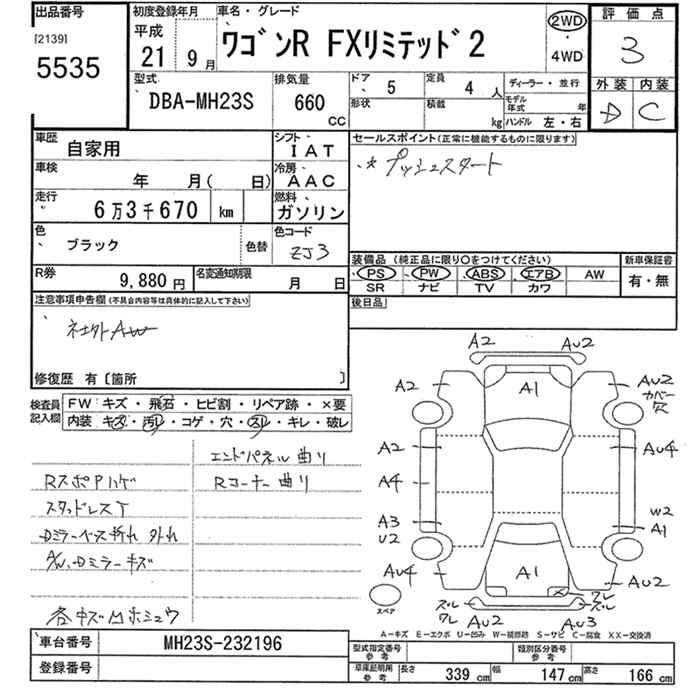 出品番号
[2139]
5535
初度登録年月
平成
21年 9月
車名・グレード
ワゴンR FXリミテッド2
2WD
・
4WD
評価点
3
外装 内装
D C
型式
DBA-MH23S
排気量
660
CC
ドア
5
定員
4人
形状
積載
kg
ディーラー・並行
モデル年式 年
ハンドル 左・右
車歴
自家用
シフト
IAT
車検
年 月( 日)
冷房
AAC
走行
6万3千670 km
燃料
ガソリン
色
ブラック
色替
色コード
ZJ3
R券
9,880円
名変通知期限
月 日
セールスポイント(正常に機能するものに限ります)
プッシュスタート
装備品 (純正品に限り○をつけてください)
新車保証書
PS PW ABS エアB AW
SR ナビ TV カワ
有・無
後日品
注意事項申告欄(不具合内容等は具体的に記入して下さい)
社外AW
修復歴 有〔箇所 〕
検査員記入欄
FW キズ・飛石・ヒビ割・リペア跡・×要
内装 キズ・汚レ・コゲ・穴・スレ・キレ・破レ
エンドパネル曲り
RスポPハゲ
Rコーナー曲り
スタッドレスT
Dミラーベース折れ 外れ
A/W、Dミラーキズ
各キズ凹ホシュウ
A2 AU2
A2 A1 AU2
カバー穴
A2 AU4
A4
A3 W2
U2 A1
AU4 A1 AU2
スペア
ズレ ワレ
ワレ ズレ
AU2 AU3
A-キズ E-エクボ U-凹み W-補修跡 S-サビ C-腐食 XX-交換済
車台番号
MH23S-232196
登録番号
型式指定番号
参考
類別区分番号
参考
車庫証明用
参考
長さ 339cm 幅 147cm 高さ 166cm